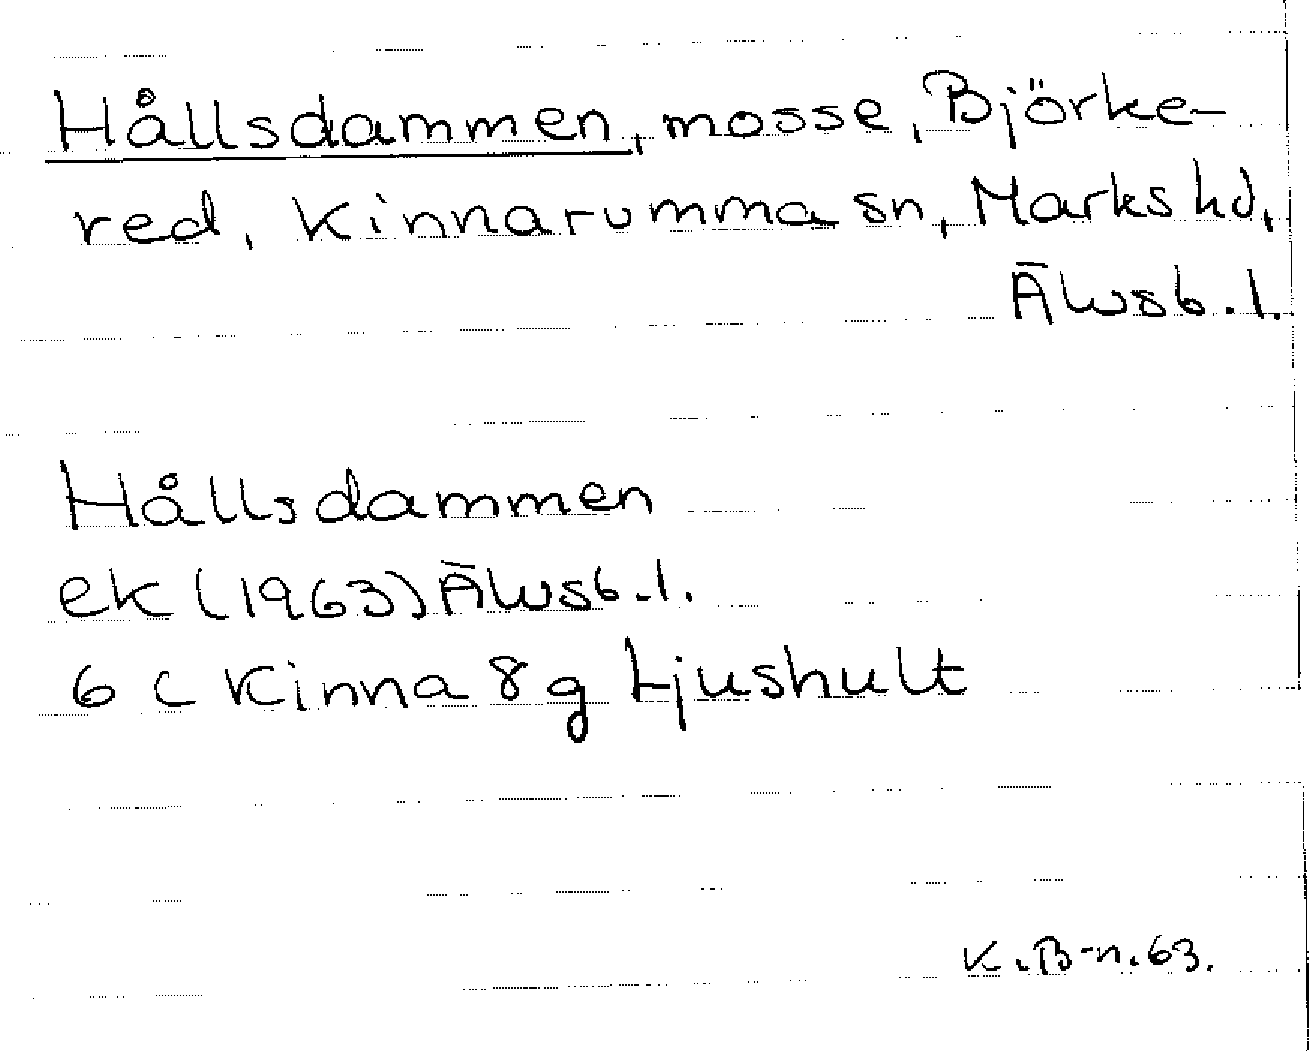 Hållsdammen, mosse, Björke-
red, Kinnarumma sn, Marks hd,
Älvsb. l.
Hållsdammen
ek (1963) Älvsb. l.
6 c Kinna 8 g Ljushult
K. B-n. 63.